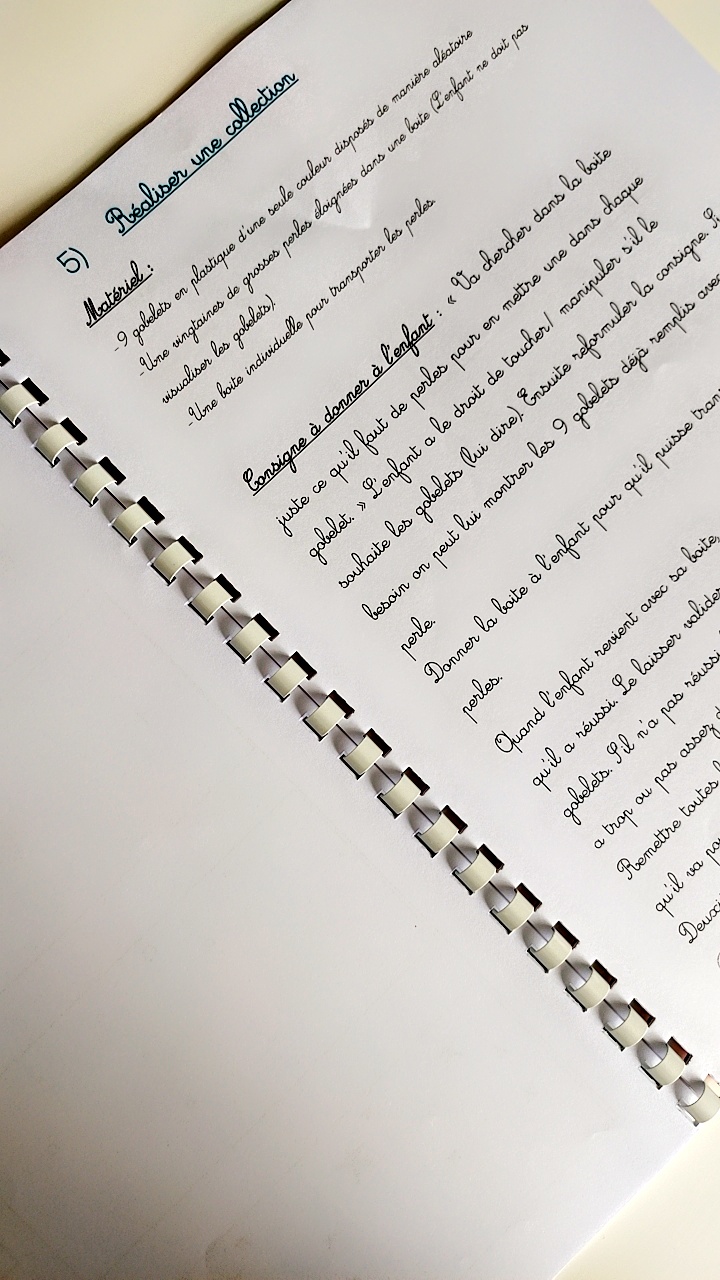 5) Réaliser une collection
Matériel :
-9 gobelets en plastique d'une seule couleur disposés de manière aléatoire
-Une vingtaines de grosses perles éloignées dans une boite (L'enfant ne doit pas
visualiser les gobelets).
-Une boite individuelle pour transporter les perles.
Consigne à donner à l'enfant : « Va chercher dans la boite
juste ce qu'il faut de perles pour en mettre une dans chaque
gobelet. » L'enfant a le droit de toucher/ manipuler s'il le
souhaite les gobelets (lui dire). Ensuite reformuler la consigne. Si
besoin on peut lui montrer les 9 gobelets déjà remplis avec
perle.
Donner la boite à l'enfant pour qu'il puisse
perles.
Quand l'enfant revient avec sa boite,
qu'il a réussi. Le laisser valider
gobelets. S'il n'a pas réussi
a trop ou pas assez
Remettre toutes
qu'il va